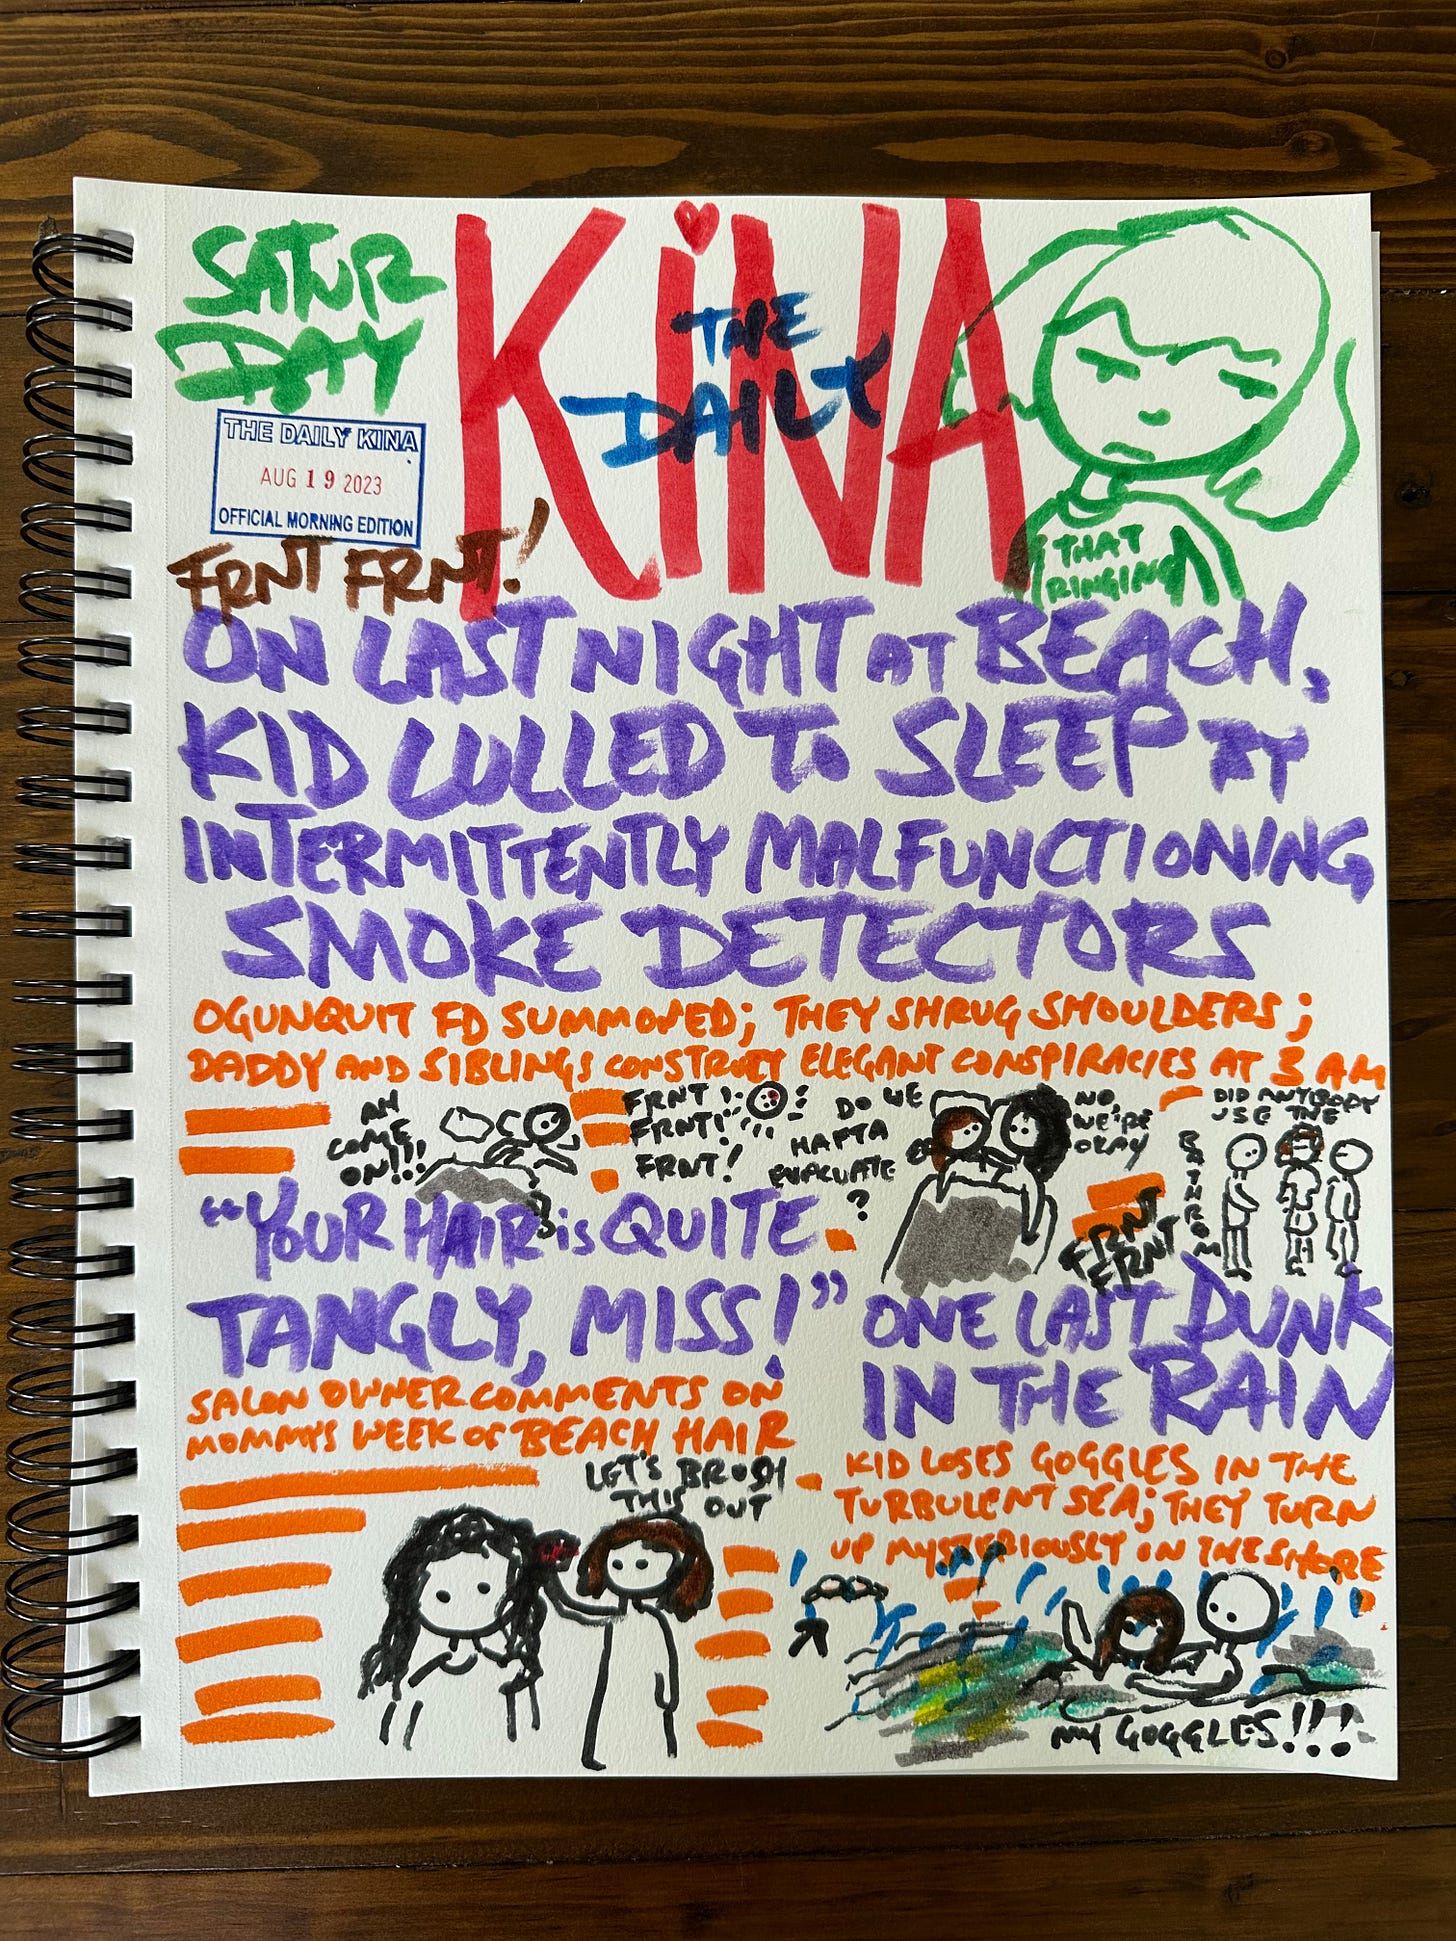 SATUR
DAY
KiNA
THE
DAILY
THE DAILY KINA
AUG 19 2023
OFFICIAL MORNING EDITION
THAT
RINGING
FRNT FRNT!
ON LAST NIGHT AT BEACH,
KID LULLED TO SLEEP BY
INTERMITTENTLY MALFUNCTIONING
SMOKE DETECTORS
OGUNQUIT FD SUMMONED; THEY SHRUG SHOULDERS;
DADDY AND SIBLINGS CONSTRUCT ELEGANT CONSPIRACIES AT 3 AM
AH
COME
ON!!!
FRNT!
FRNT!
FRNT!
DO WE
HAFTA
EVACUATE
?
NO
WE'RE
OKAY
DID ANYBODY
USE THE
BATHROOM
FRNT
FRNT
"YOUR HAIR is QUITE
TANGLY, MISS!"
SALON OWNER COMMENTS ON
MOMMY'S WEEK OF BEACH HAIR
LET'S BRUSH
THIS OUT
ONE LAST DUNK
IN THE RAIN
KID LOSES GOGGLES IN THE
TURBULENT SEA; THEY TURN
UP MYSTERIOUSLY ON THE SHORE
MY GOGGLES!!!